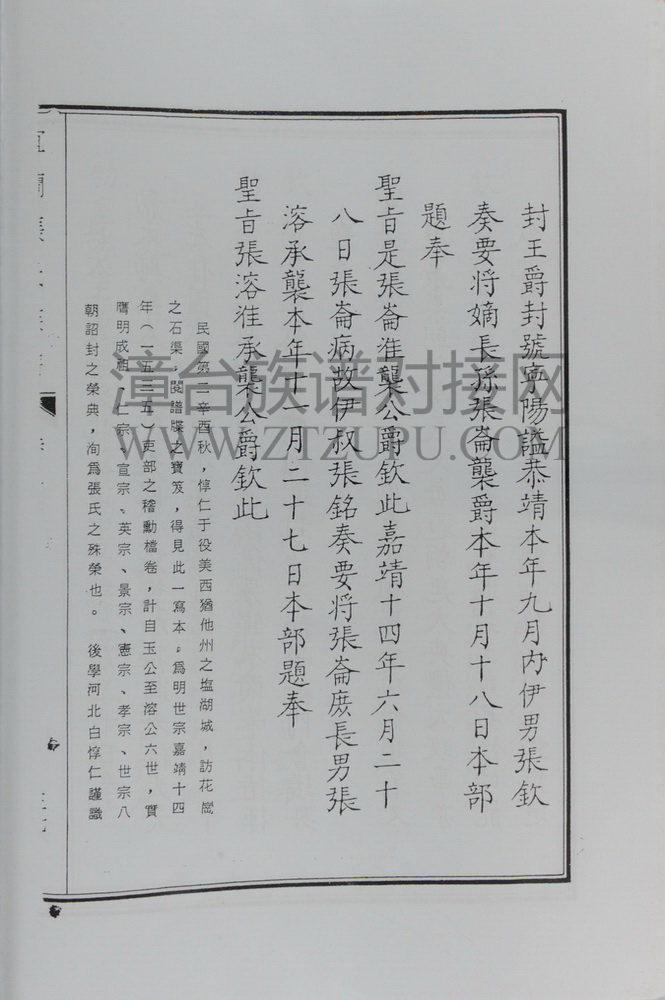 封王爵封號寧陽諡恭靖本年九月內伊男張欽
奏要將嫡長孫張崙襲爵本年十月十八日本部
題奉
聖旨是張崙准襲公爵欽此嘉靖十四年六月二十
八日張崙病故伊叔張銘奏要將張崙庶長男張
溶承襲本年十一月二十七日本部題奉
聖旨張溶准承襲公爵欽此
民國第二辛酉秋，惇仁于役美西猶他州之塩湖城，訪花崗
之石渠，閱譜牒之寶笈，得見此一寫本。爲明世宗嘉靖十四
年（一五三五）吏部之稽勳檔卷，計自玉公至溶公六世，實
膺明成祖、仁宗、宣宗、英宗、景宗、憲宗、孝宗、世宗八
朝詔封之榮典，洵爲張氏之殊榮也。 後學河北白惇仁謹識
漳台族谱对接网
WWW.ZTZUPU.COM